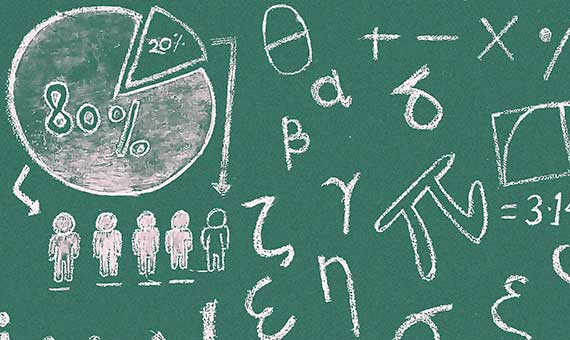 20%
80%
θ + − × %
α δ
β
γ π = 3.14
ζ
η
ε σ ξ